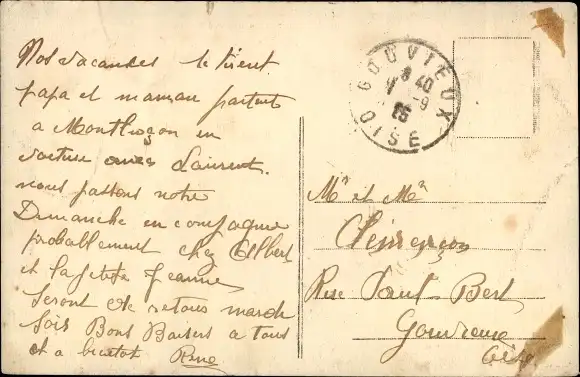 Nos vacances se tirent
papa et maman partent
a Montluçon en
voiture avec Laurent.
nous passons notre
Dimanche en compagnie
probablement chez Albert
et la petite Jeanne
seront de retour mardi
soir Bons Baisers a tous
et a bientot René
GOUVIEUX
8 40
7 -9
OISE
Mr et Me
Rue Paul-Bert
Gouvieux
Oise